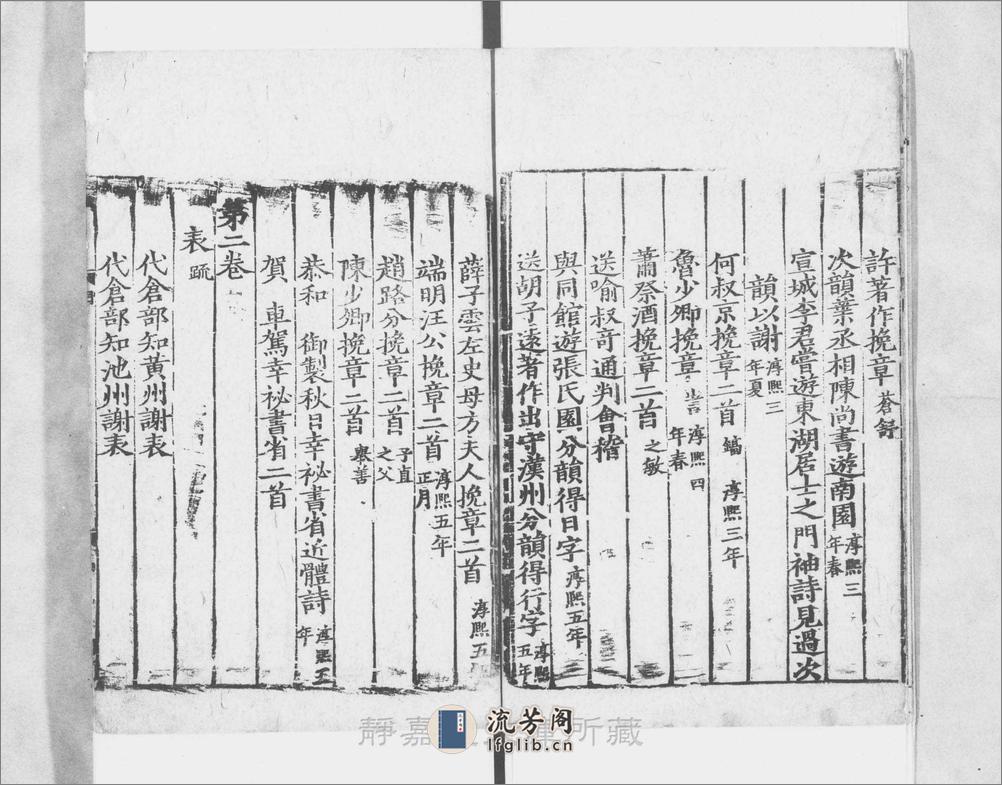 許著作挽章蒼舒
次韻葉丞相陳尚書遊南園淳熙三年春
宣城李君嘗遊東湖居士之門袖詩見過次
韻以謝淳熙三年夏
何叔京挽章二首鎬 淳熙三年
魯少卿挽章訔淳熙四年春
蕭祭酒挽章二首之敏
送喻叔奇通判會稽
與同館遊張氏園分韻得日字淳熙五年
送胡子遠著作出守漢州分韻得行字淳熙五年
薛子雲左史母方夫人挽章二首淳熙五
端明汪公挽章二首淳熙五年正月
趙路分挽章二首子直之父
陳少卿挽章二首舉善
恭和 御製秋日幸祕書省近體詩淳熙五年
賀 車駕幸祕書省二首
第二卷
表疏
代倉部知黃州謝表
代倉部知池州謝表
靜嘉 所藏
流芳阁
lfglib.cn